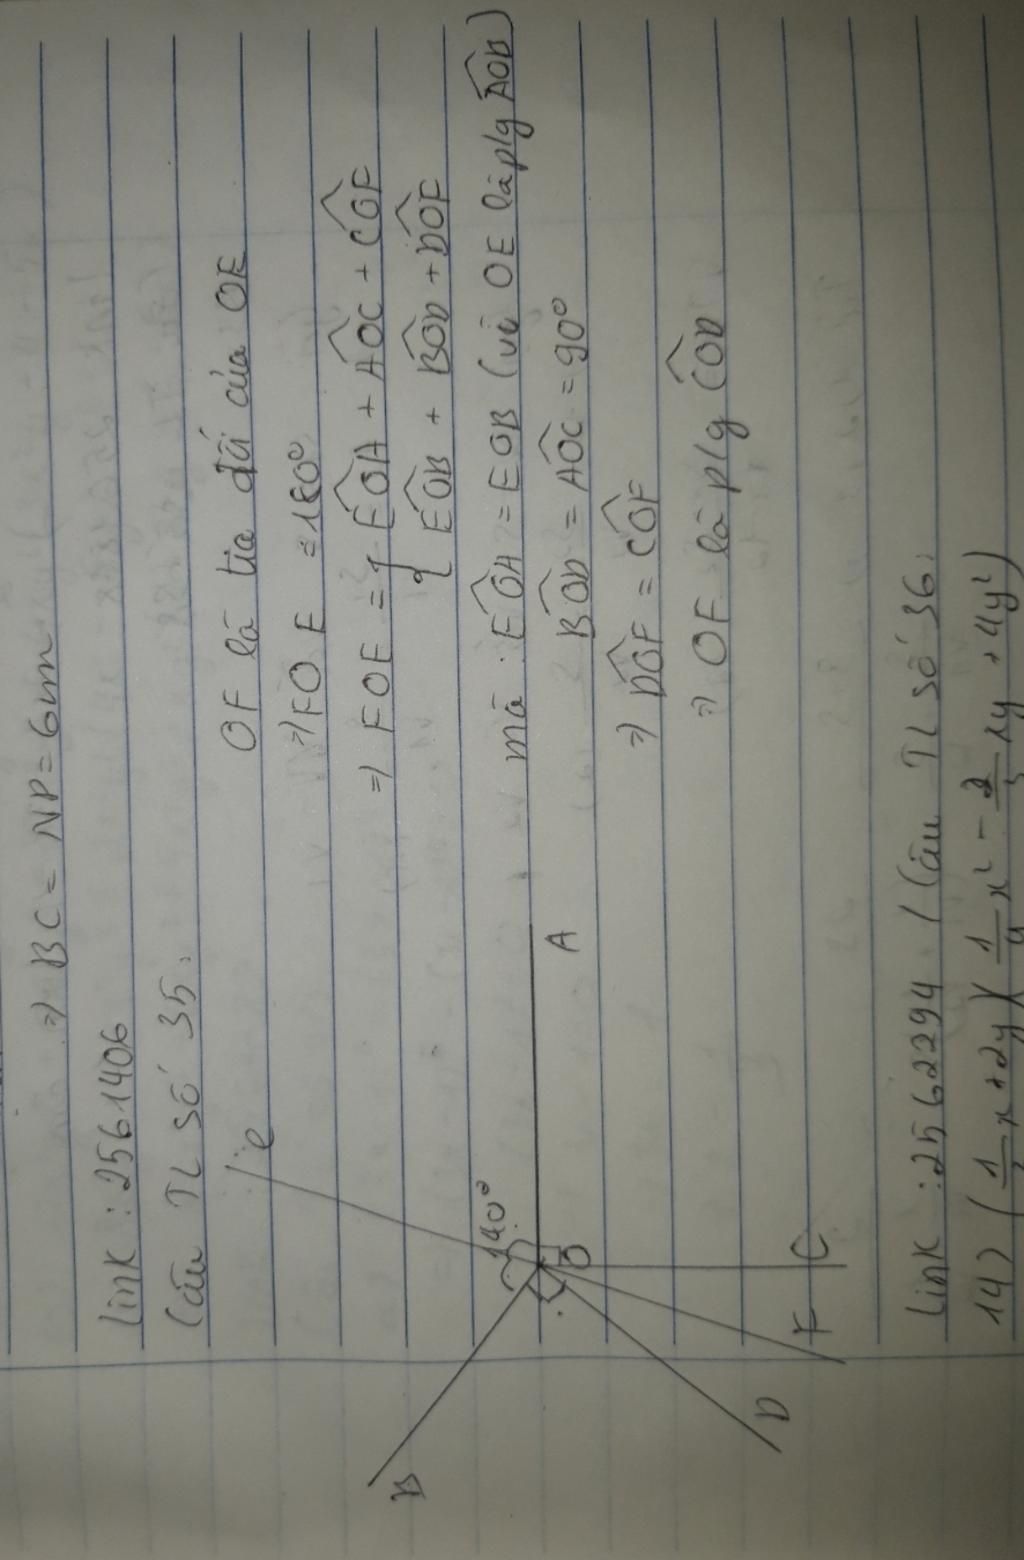 ⇒ BC = NP = 6cm
Link : 2561406
Câu TL số 35.
OF là tia đối của OE
⇒ FOE = 180°
⇒ FOE = { EOA + AOC + COF
{ EOB + BOD + DOF
mà : EOA = EOB (vì OE là plg AOB)
BOD = AOC = 90°
⇒ DOF = COF
⇒ OF là plg COD
e
140°
B
A
O
D
F
C
Link : 2562294 / Câu TL số 36.
14) (1/ x + 2y)(1/9 x² - 2/3 xy + 4y²)